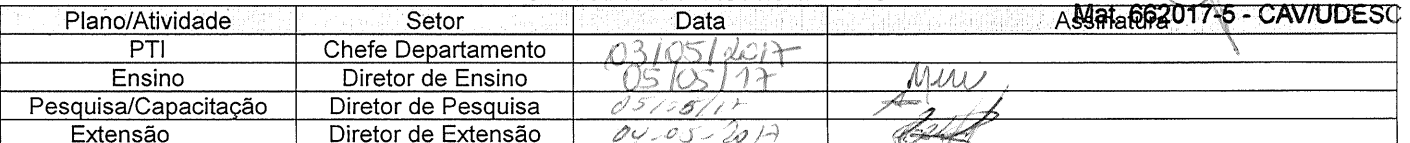 Plano/Atividade Setor Data Assinatura Mat. 662017-5 - CAV/UDESC
PTI Chefe Departamento 03/05/2017
Ensino Diretor de Ensino 05/05/17
Pesquisa/Capacitação Diretor de Pesquisa 05/05/17
Extensão Diretor de Extensão 04-05-2017